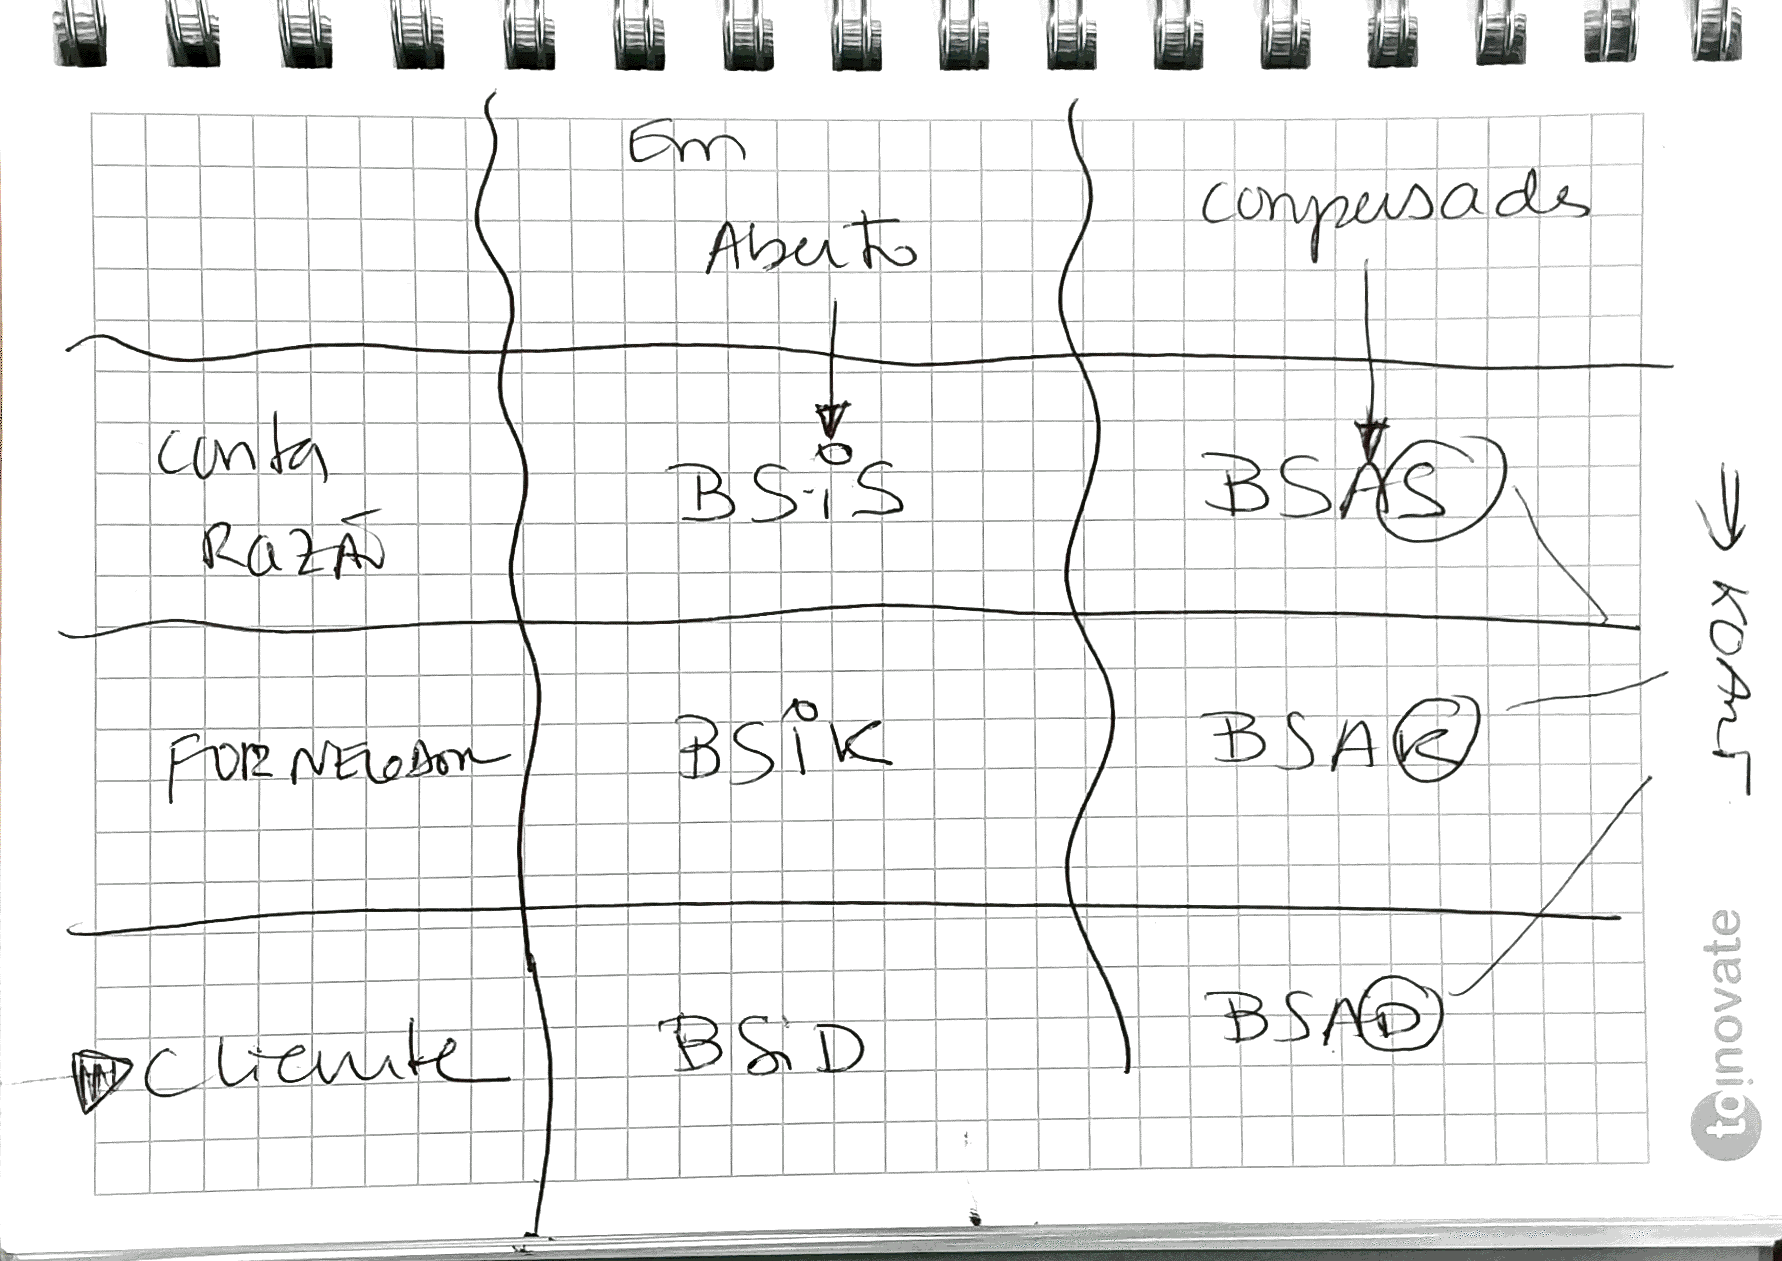 Em
Aberto
Compensado
Conta
RAZÃO
BSiS
BSAS
FORNECEDOR
BSiK
BSAK
Cliente
BSiD
BSAD
→ KOART
toinovate